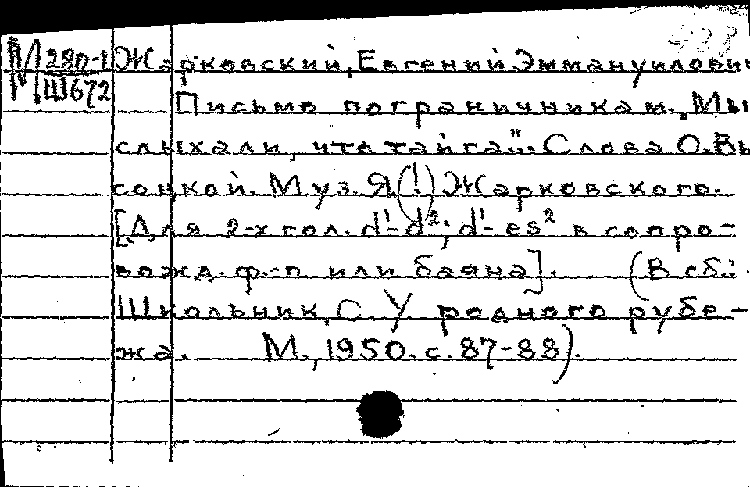 М 280-1 Жарковский, Евгений Эммануилович
М Ш672
Письмо пограничникам. „Мы
слыхали, что тайга"... Слова О. Вы
соцкой. Муз. Я(!) Жарковского.
[Для 2-х гол. d¹-d²; d¹-es² в сопро-
вожд. ф.-п или баяна]. (В сб.:
Школьник, С. У родного рубе-
жа. М., 1950. с. 87-88).